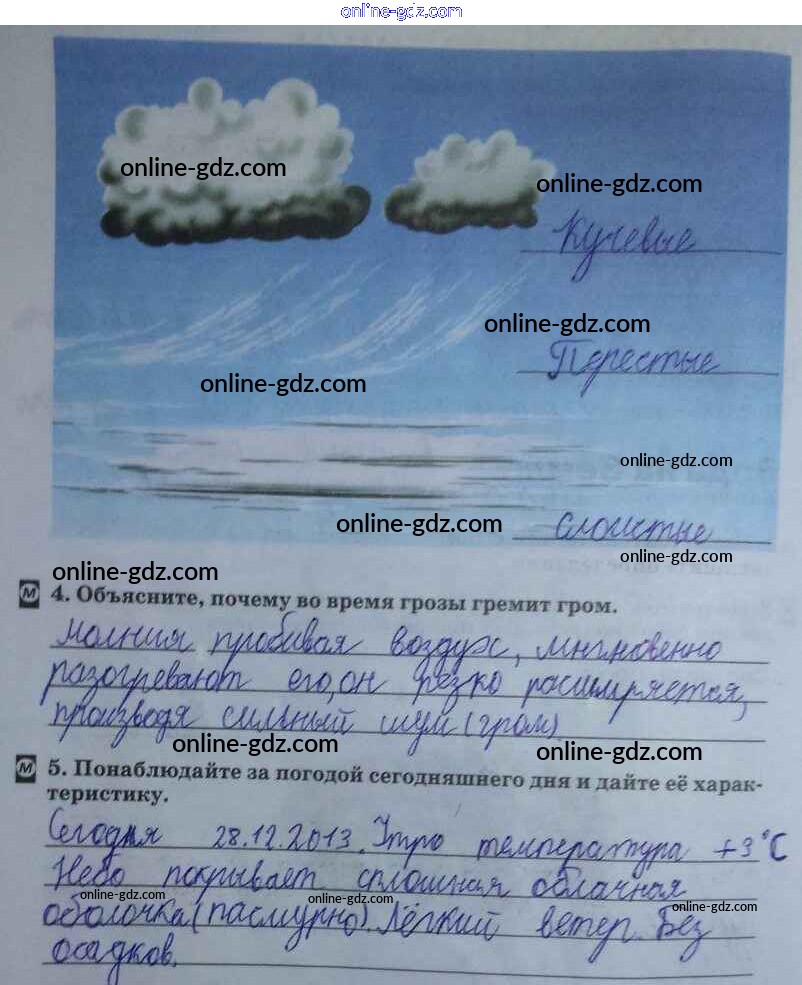 online-gdz.com
online-gdz.com
online-gdz.com
Кучевые
online-gdz.com
Перестые
online-gdz.com
online-gdz.com
online-gdz.com
слоистые
online-gdz.com
online-gdz.com
М 4. Объясните, почему во время грозы гремит гром.
Молния пробивая воздух, мнгновенно
разогревают его, он резко расширяется,
производя сильный шум (гром)
online-gdz.com
online-gdz.com
М 5. Понаблюдайте за погодой сегодняшнего дня и дайте её харак-
теристику.
Сегодня 28.12.2013. Утро температура +3°C
Небо покрывает сплошная облачная
online-gdz.com
online-gdz.com
online-gdz.com
оболочка (пасмурно). Лёгкий ветер. Без
осадков.